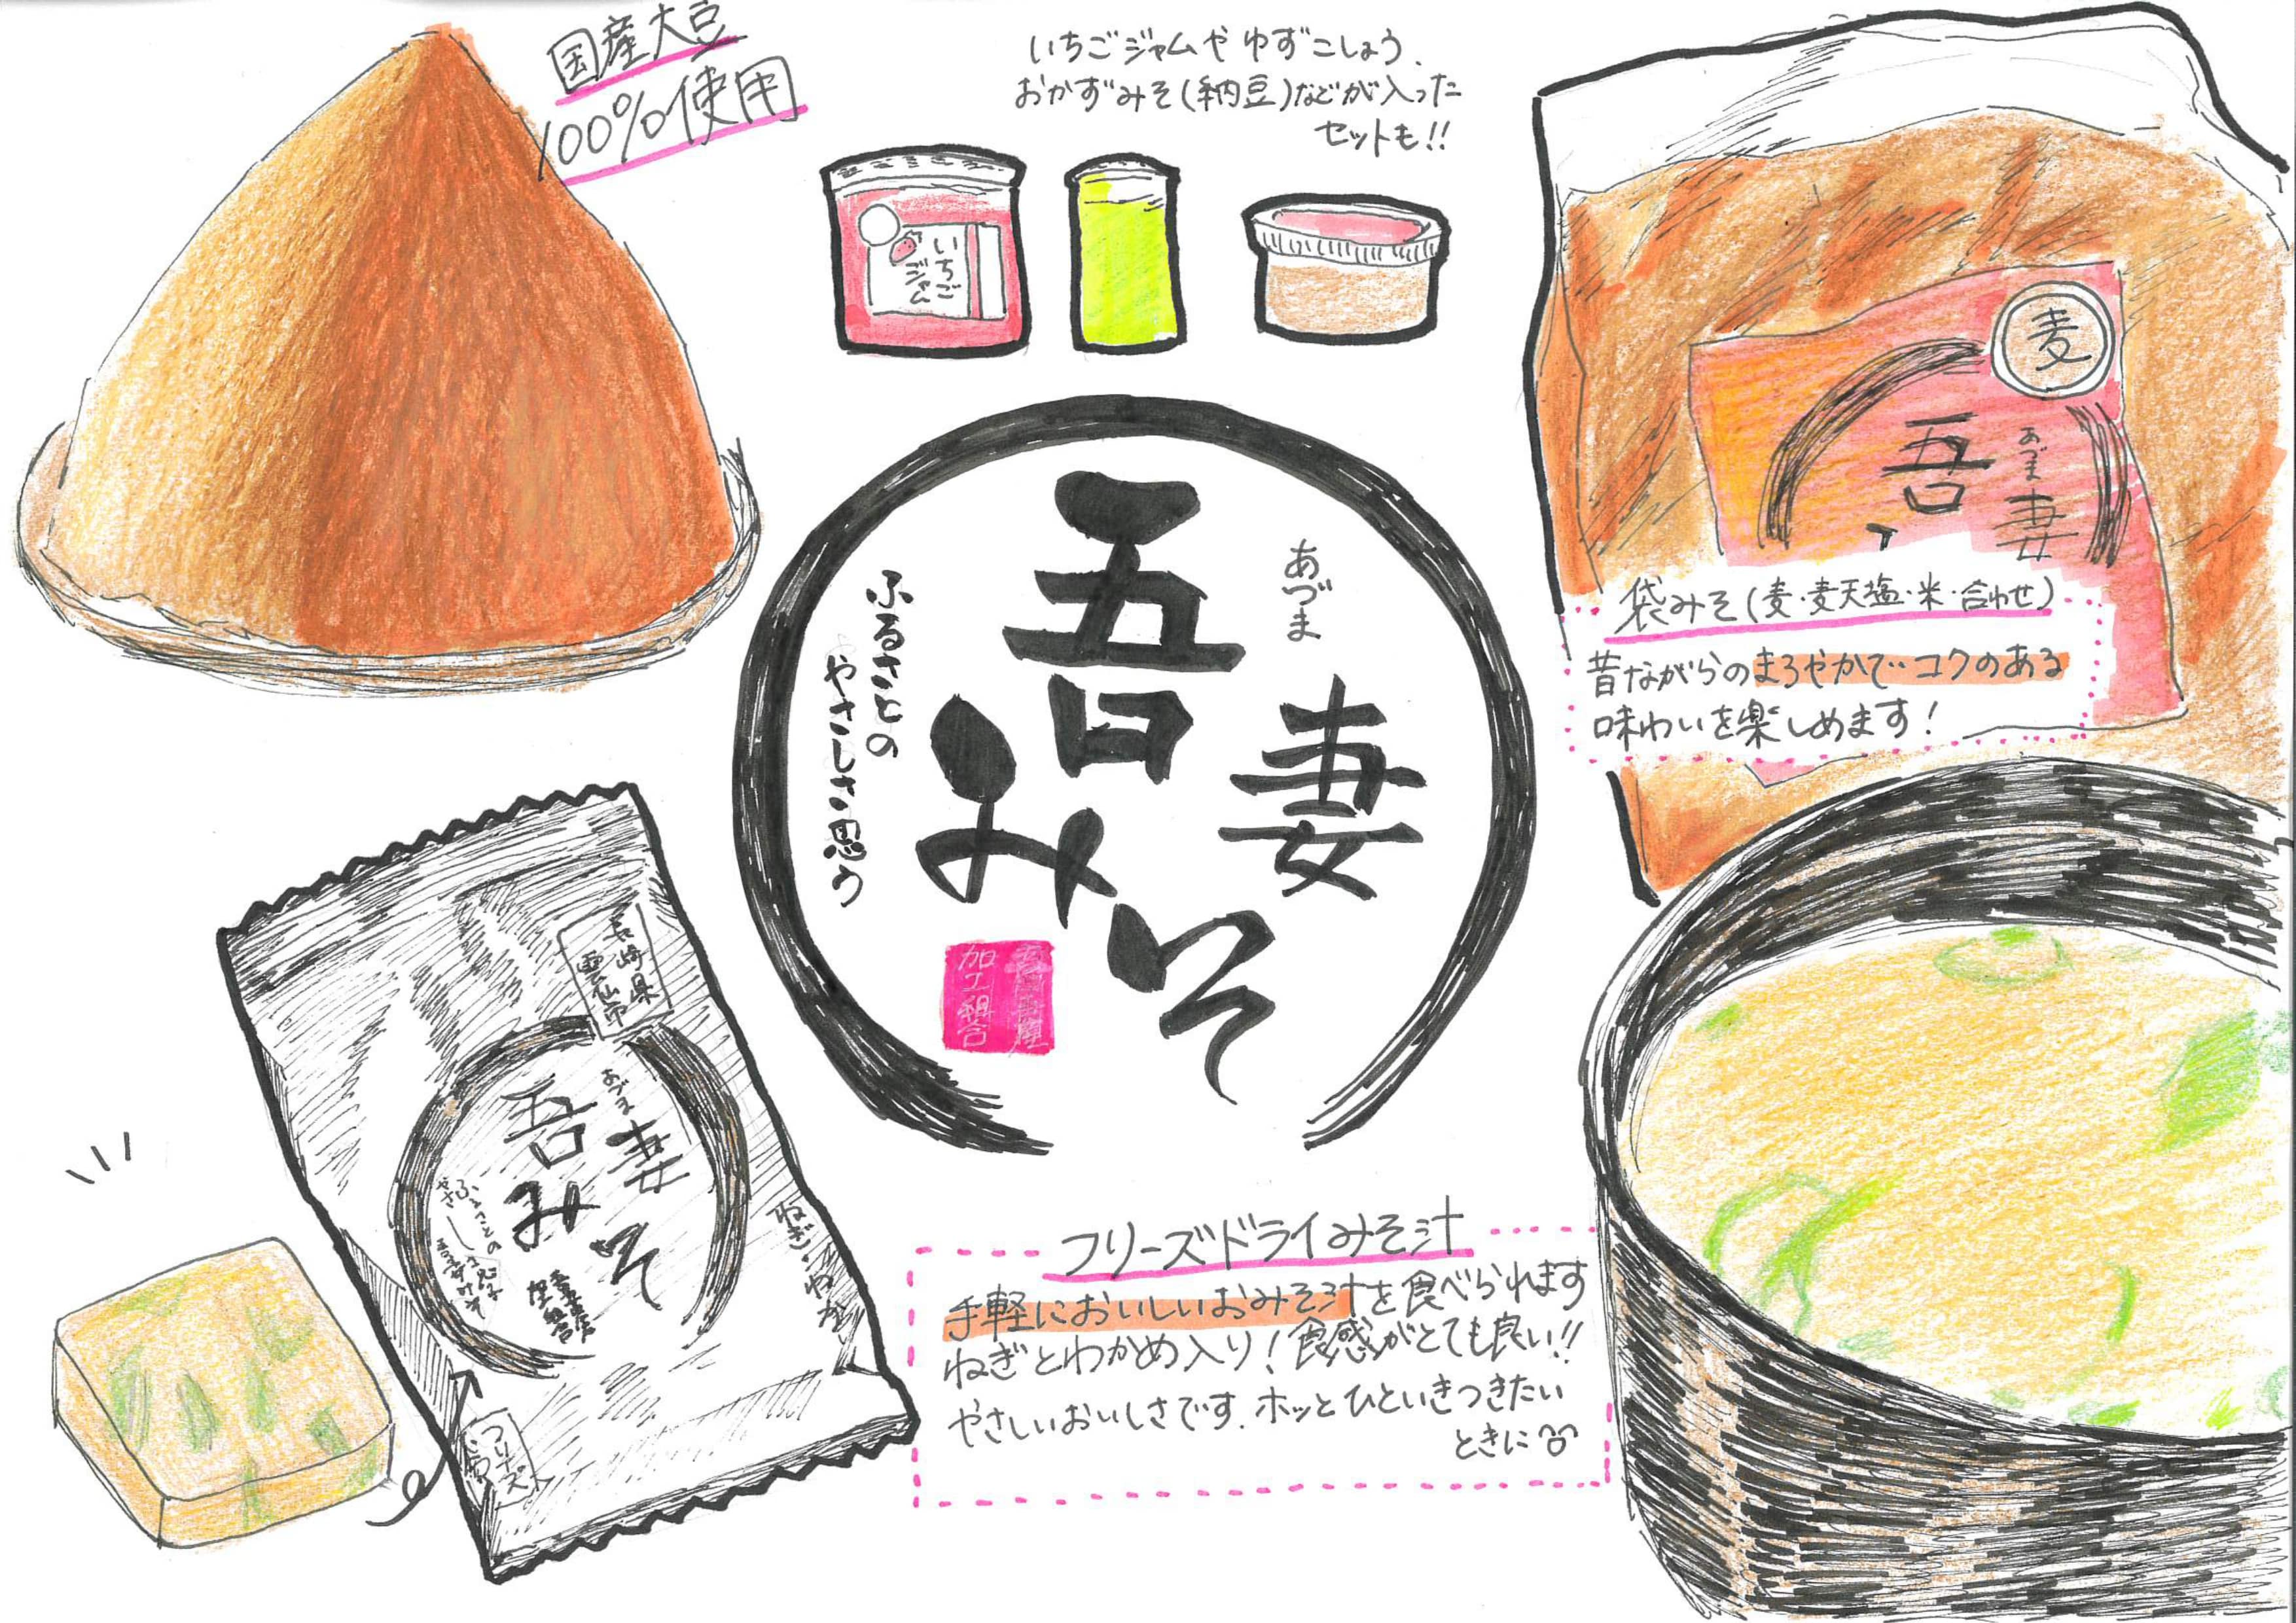 国産大豆
100%使用
いちごジャムやゆずこしょう、
おかずみそ(納豆)などが入った
セットも!!
いちご
ジャム
麦
あづま
吾妻
袋みそ(麦・麦天塩・米・合わせ)
昔ながらのまろやかでコクのある
味わいを楽しめます!
あづま
吾妻
みそ
ふるさとの
やさしさ思う
加工組合
長崎県
雲仙市
あづま
吾妻
みそ
ふるさとの
ねぎ・わかめ
フリーズドライみそ汁
手軽においしいおみそ汁を食べられます
ねぎとわかめ入り!食感がとても良い!!
やさしいおいしさです。ホッとひといきつきたい
ときに